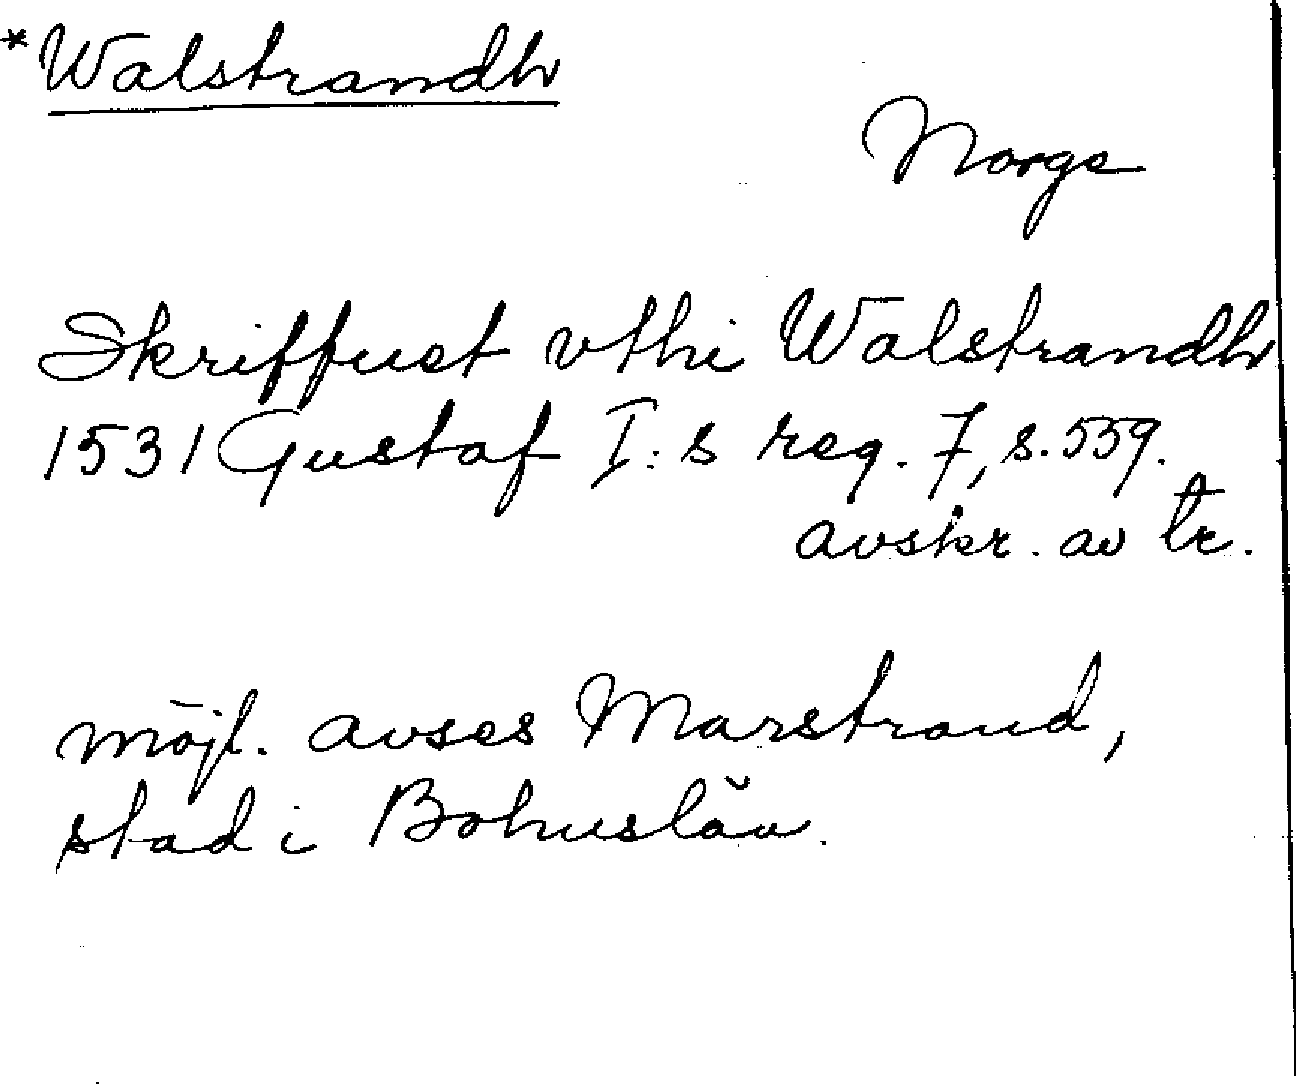 *Walstrandh
Norge
Skriffuet vthi Walstrandh
1531 Gustaf I:s reg. 7, s. 559.
avskr. av tr.
möjl. avses Marstrand,
stad i Bohuslän.